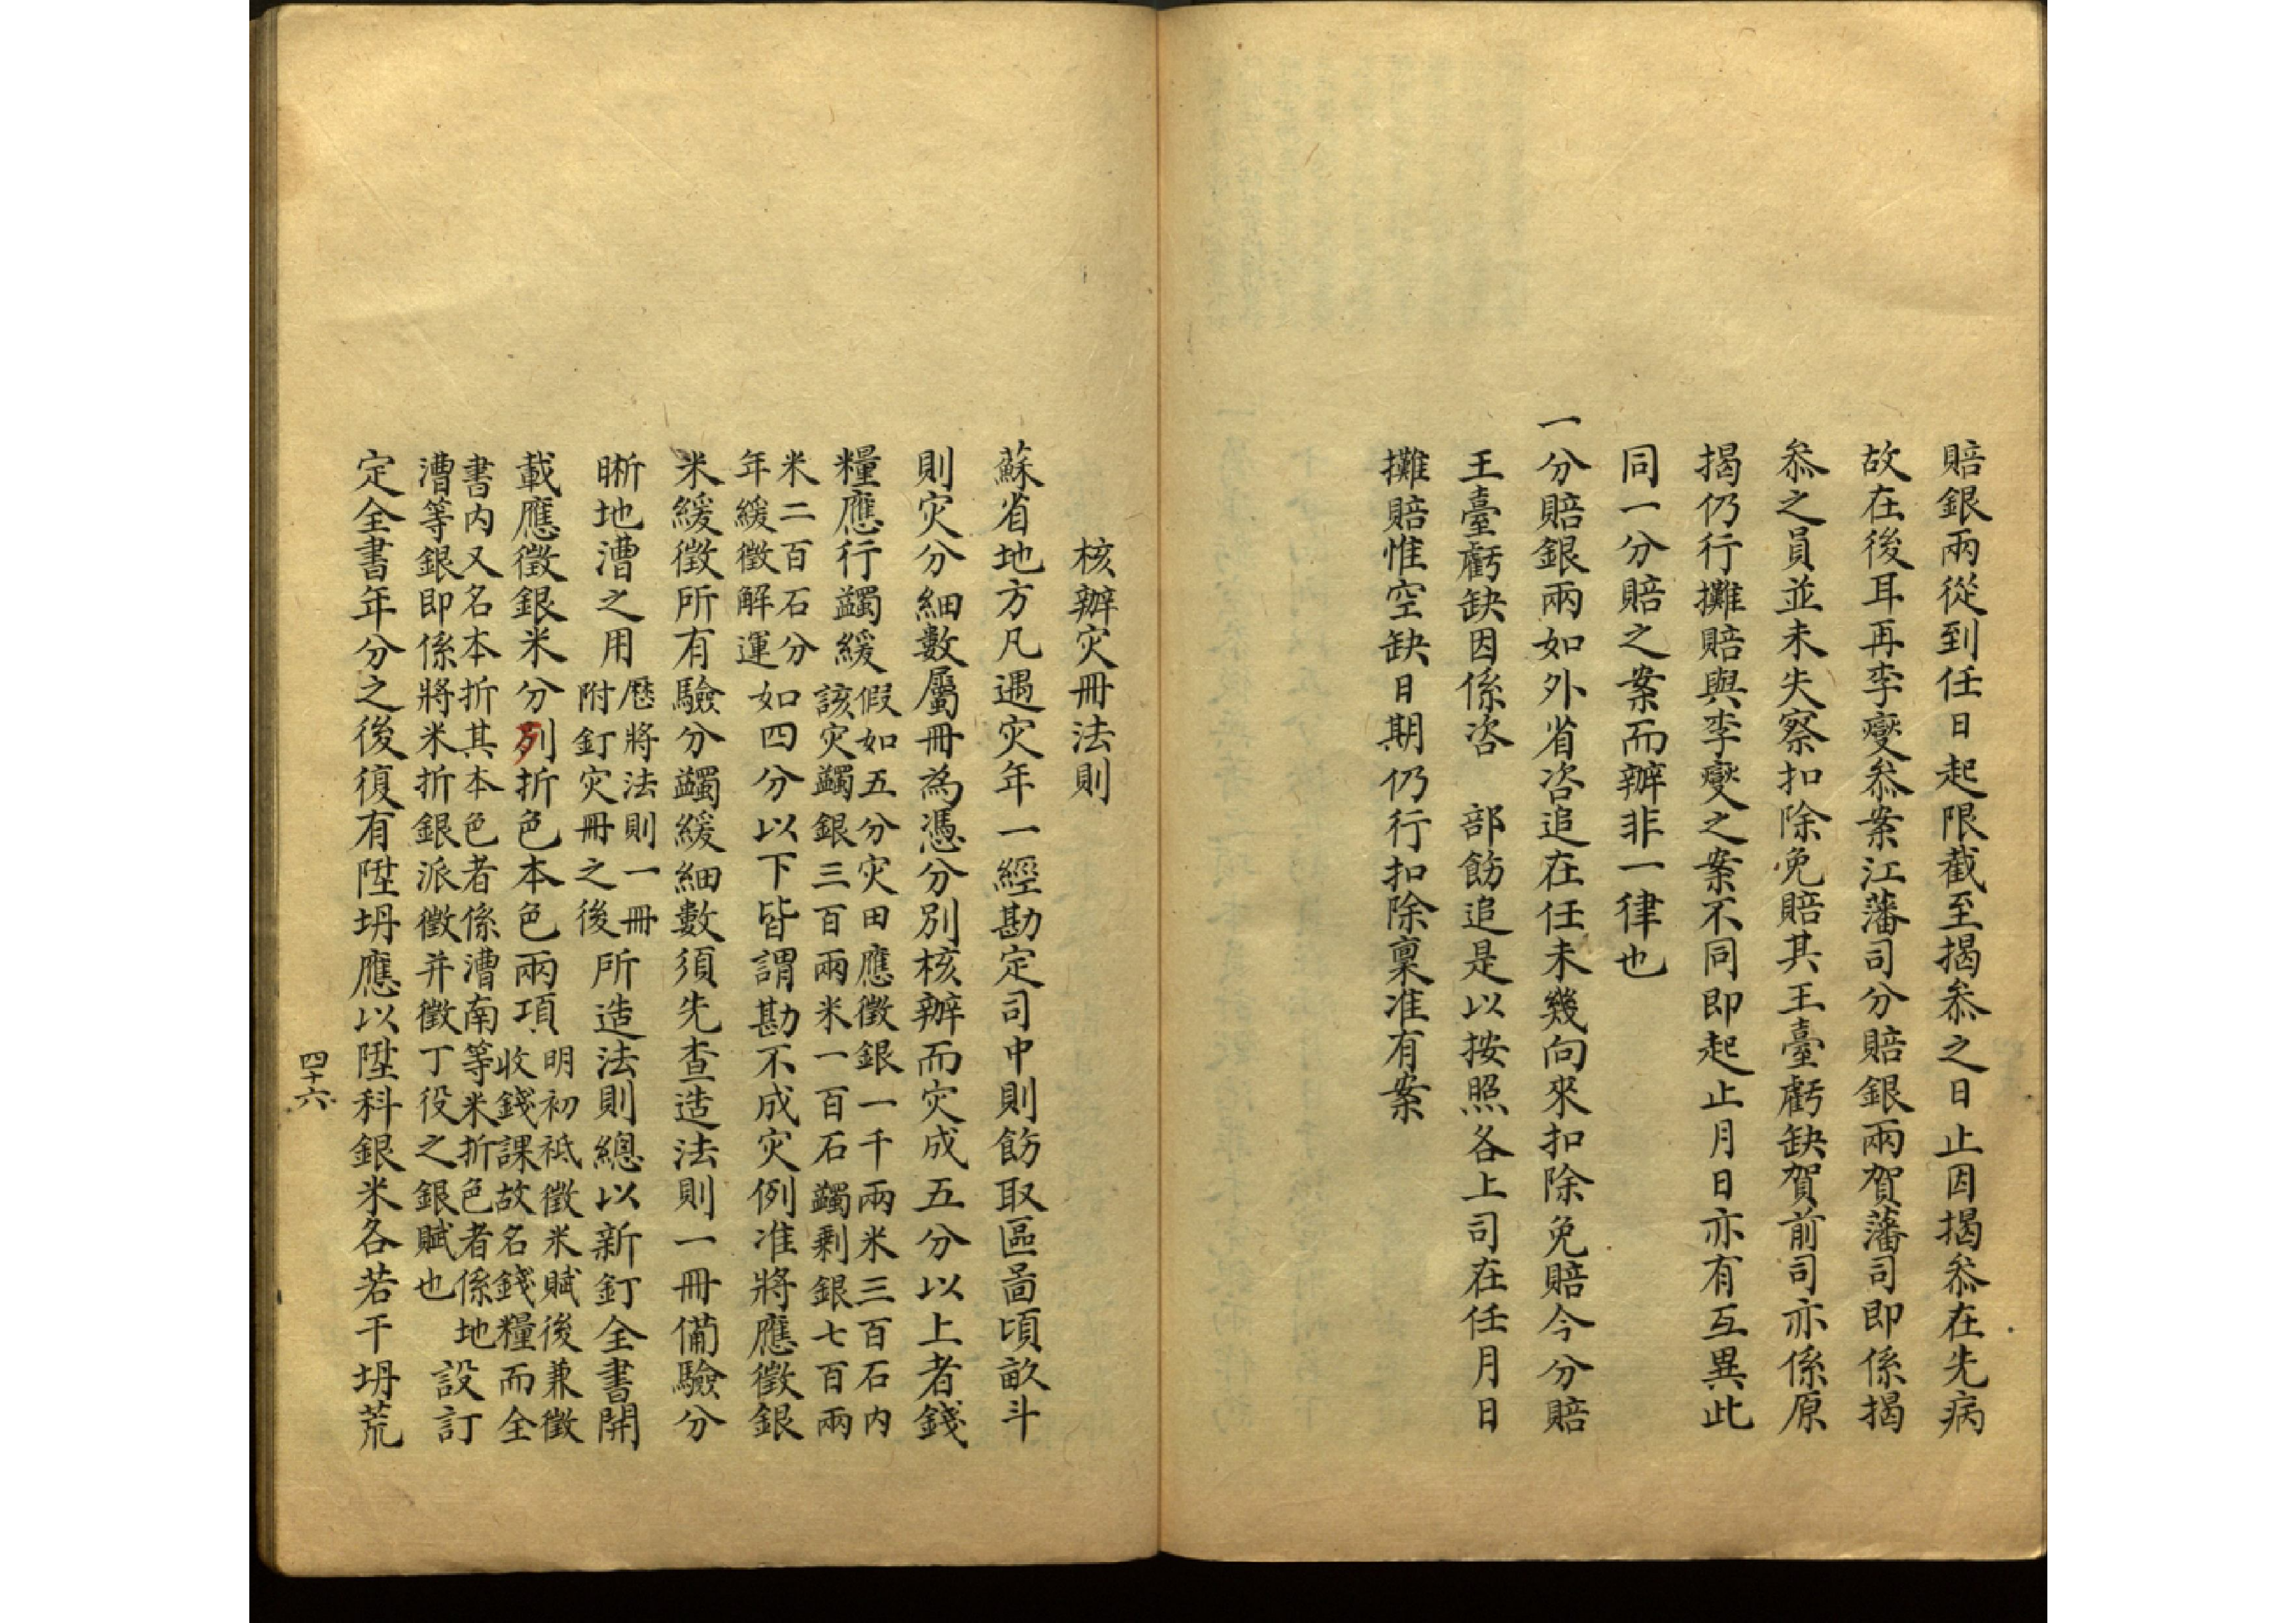 賠銀兩從到任日起限截至揭叅之日止因揭叅在先病
故在後耳再李變叅案江藩司分賠銀兩賀藩司即係揭
叅之員並未失察扣除免賠其王臺虧缺賀前司亦係原
揭仍行攤賠與李變之案不同即起止月日亦有互異此
同一分賠之案而辦非一律也
一分賠銀兩如外省咨追在任未幾向來扣除免賠今分賠
王臺虧缺因係咨　部飭追是以按照各上司在任月日
攤賠惟空缺日期仍行扣除稟准有案
核辦灾冊法則
蘇省地方凡遇灾年一經勘定司中則飭取區啚頃畝斗
則灾分細數屬冊為憑分別核辦而灾成五分以上者錢
糧應行蠲緩假如五分灾田應徵銀一千兩米三百石内
該灾蠲銀三百兩米一百石蠲剩銀七百兩
米二百石分
年緩徵解運如四分以下皆謂勘不成灾例准將應徵銀
米緩徵所有驗分蠲緩細數須先查造法則一冊備驗分
晰地漕之用歷將法則一冊
附釘灾冊之後所造法則總以新釘全書開
載應徵銀米分列折色本色兩項明初祗徵米賦後兼徵
收錢課故名錢糧而全
書内又名本折其本色者係漕南等米折色者係地
漕等銀即係將米折銀派徵并徵丁役之銀賦也設訂
定全書年分之後復有陞坍應以陞科銀米各若干坍荒
四十六